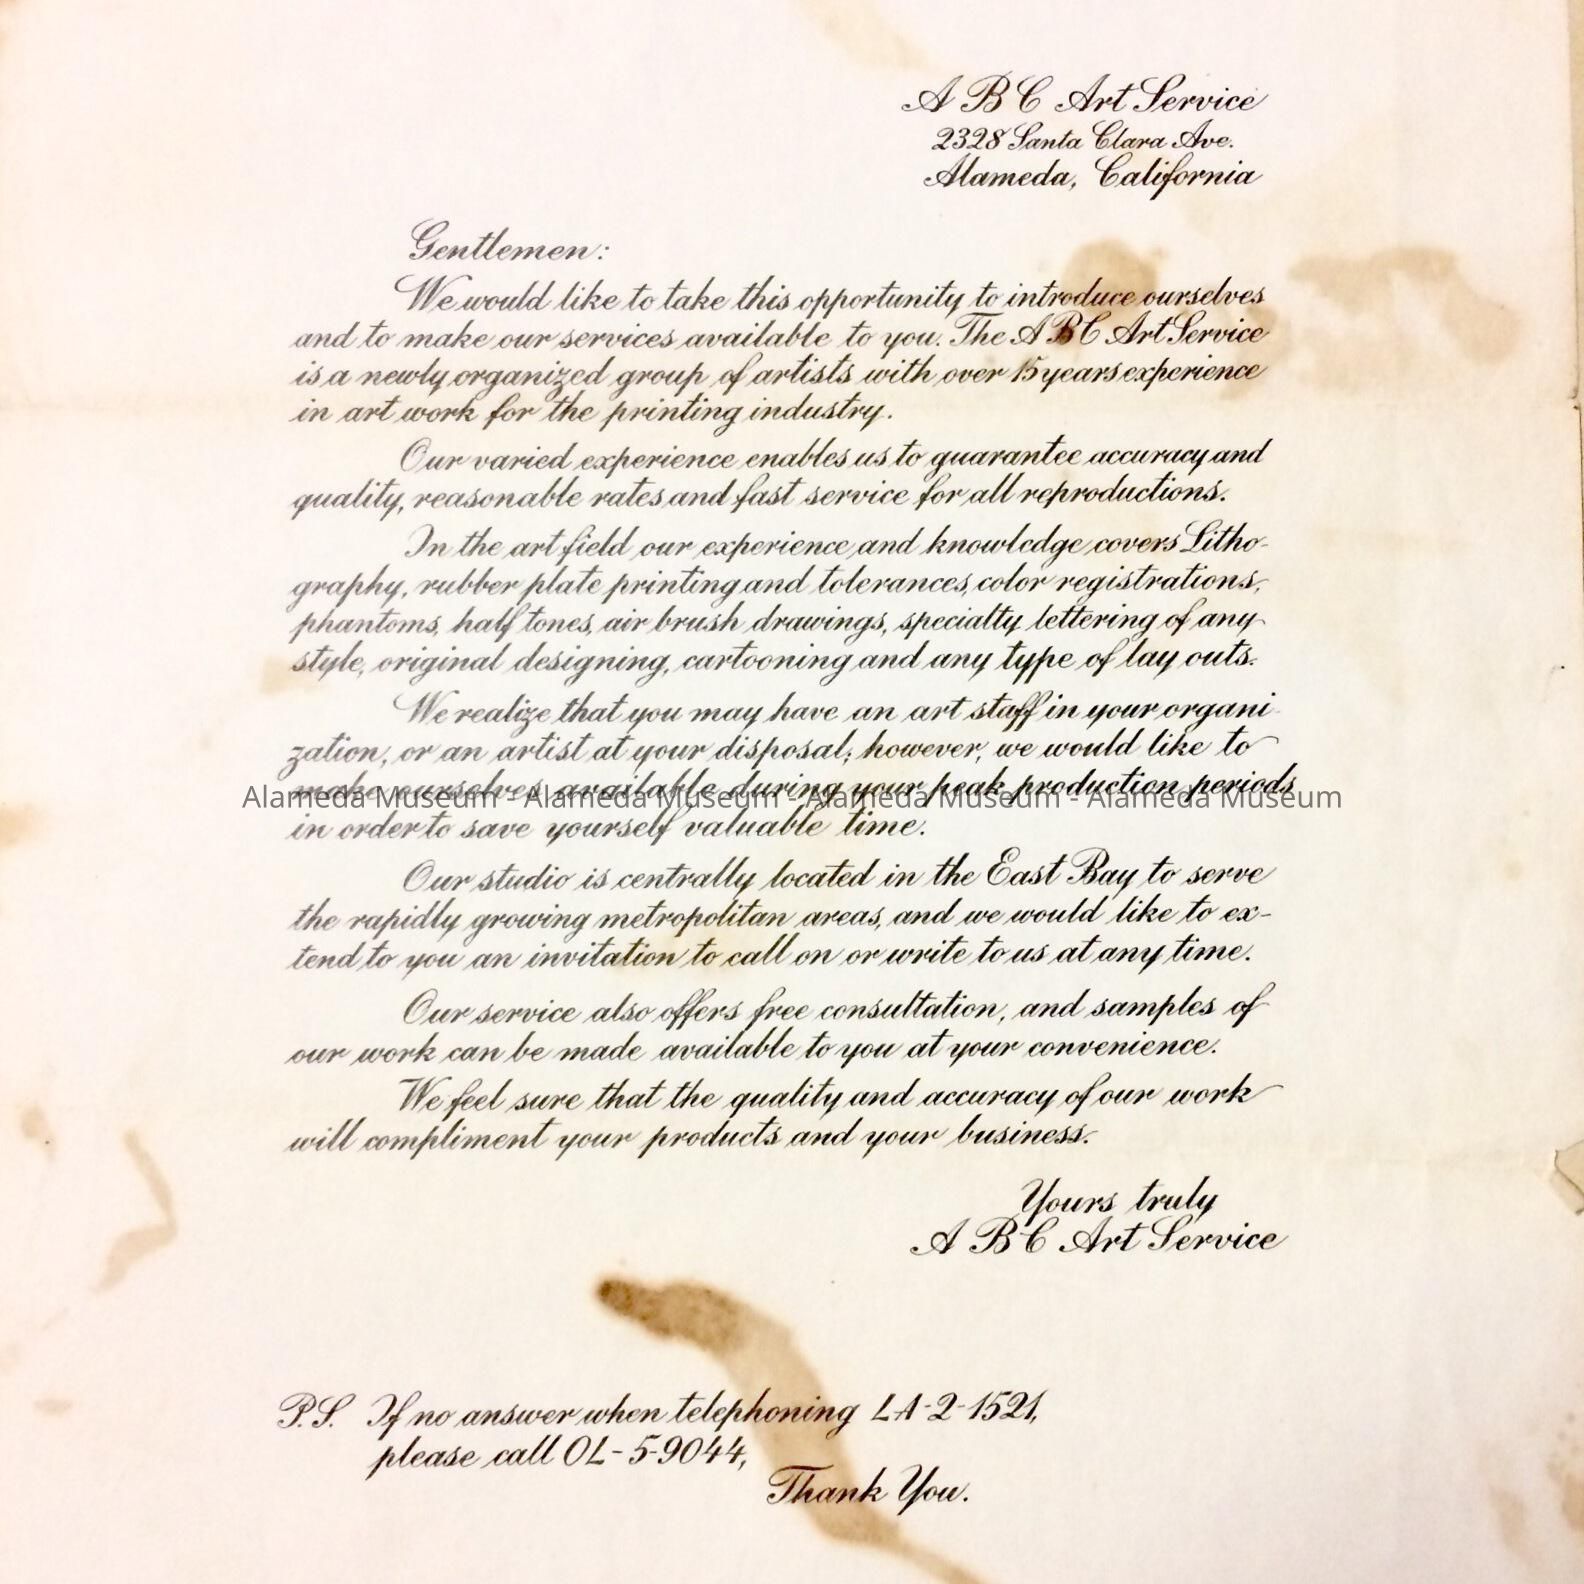 A B C Art Service
2328 Santa Clara Ave.
Alameda, California
Gentlemen:
We would like to take this opportunity to introduce ourselves
and to make our services available to you. The A B C Art Service
is a newly organized group of artists with over 15 years experience
in art work for the printing industry.
Our varied experience enables us to guarantee accuracy and
quality, reasonable rates and fast service for all reproductions.
In the art field our experience and knowledge covers Litho-
graphy, rubber plate printing and tolerances, color registrations,
phantoms, half tones, air brush drawings, specialty lettering of any
style, original designing, cartooning and any type of lay outs.
We realize that you may have an art staff in your organi-
zation, or an artist at your disposal; however, we would like to
make ourselves available during your peak production periods
Alameda Museum - Alameda Museum - Alameda Museum - Alameda Museum
in order to save yourself valuable time.
Our studio is centrally located in the East Bay to serve
the rapidly growing metropolitan areas, and we would like to ex-
tend to you an invitation to call on or write to us at any time.
Our service also offers free consultation, and samples of
our work can be made available to you at your convenience.
We feel sure that the quality and accuracy of our work
will compliment your products and your business.
Yours truly
A B C Art Service
P.S. If no answer when telephoning LA-2-1521,
please call OL-5-9044,
Thank You.